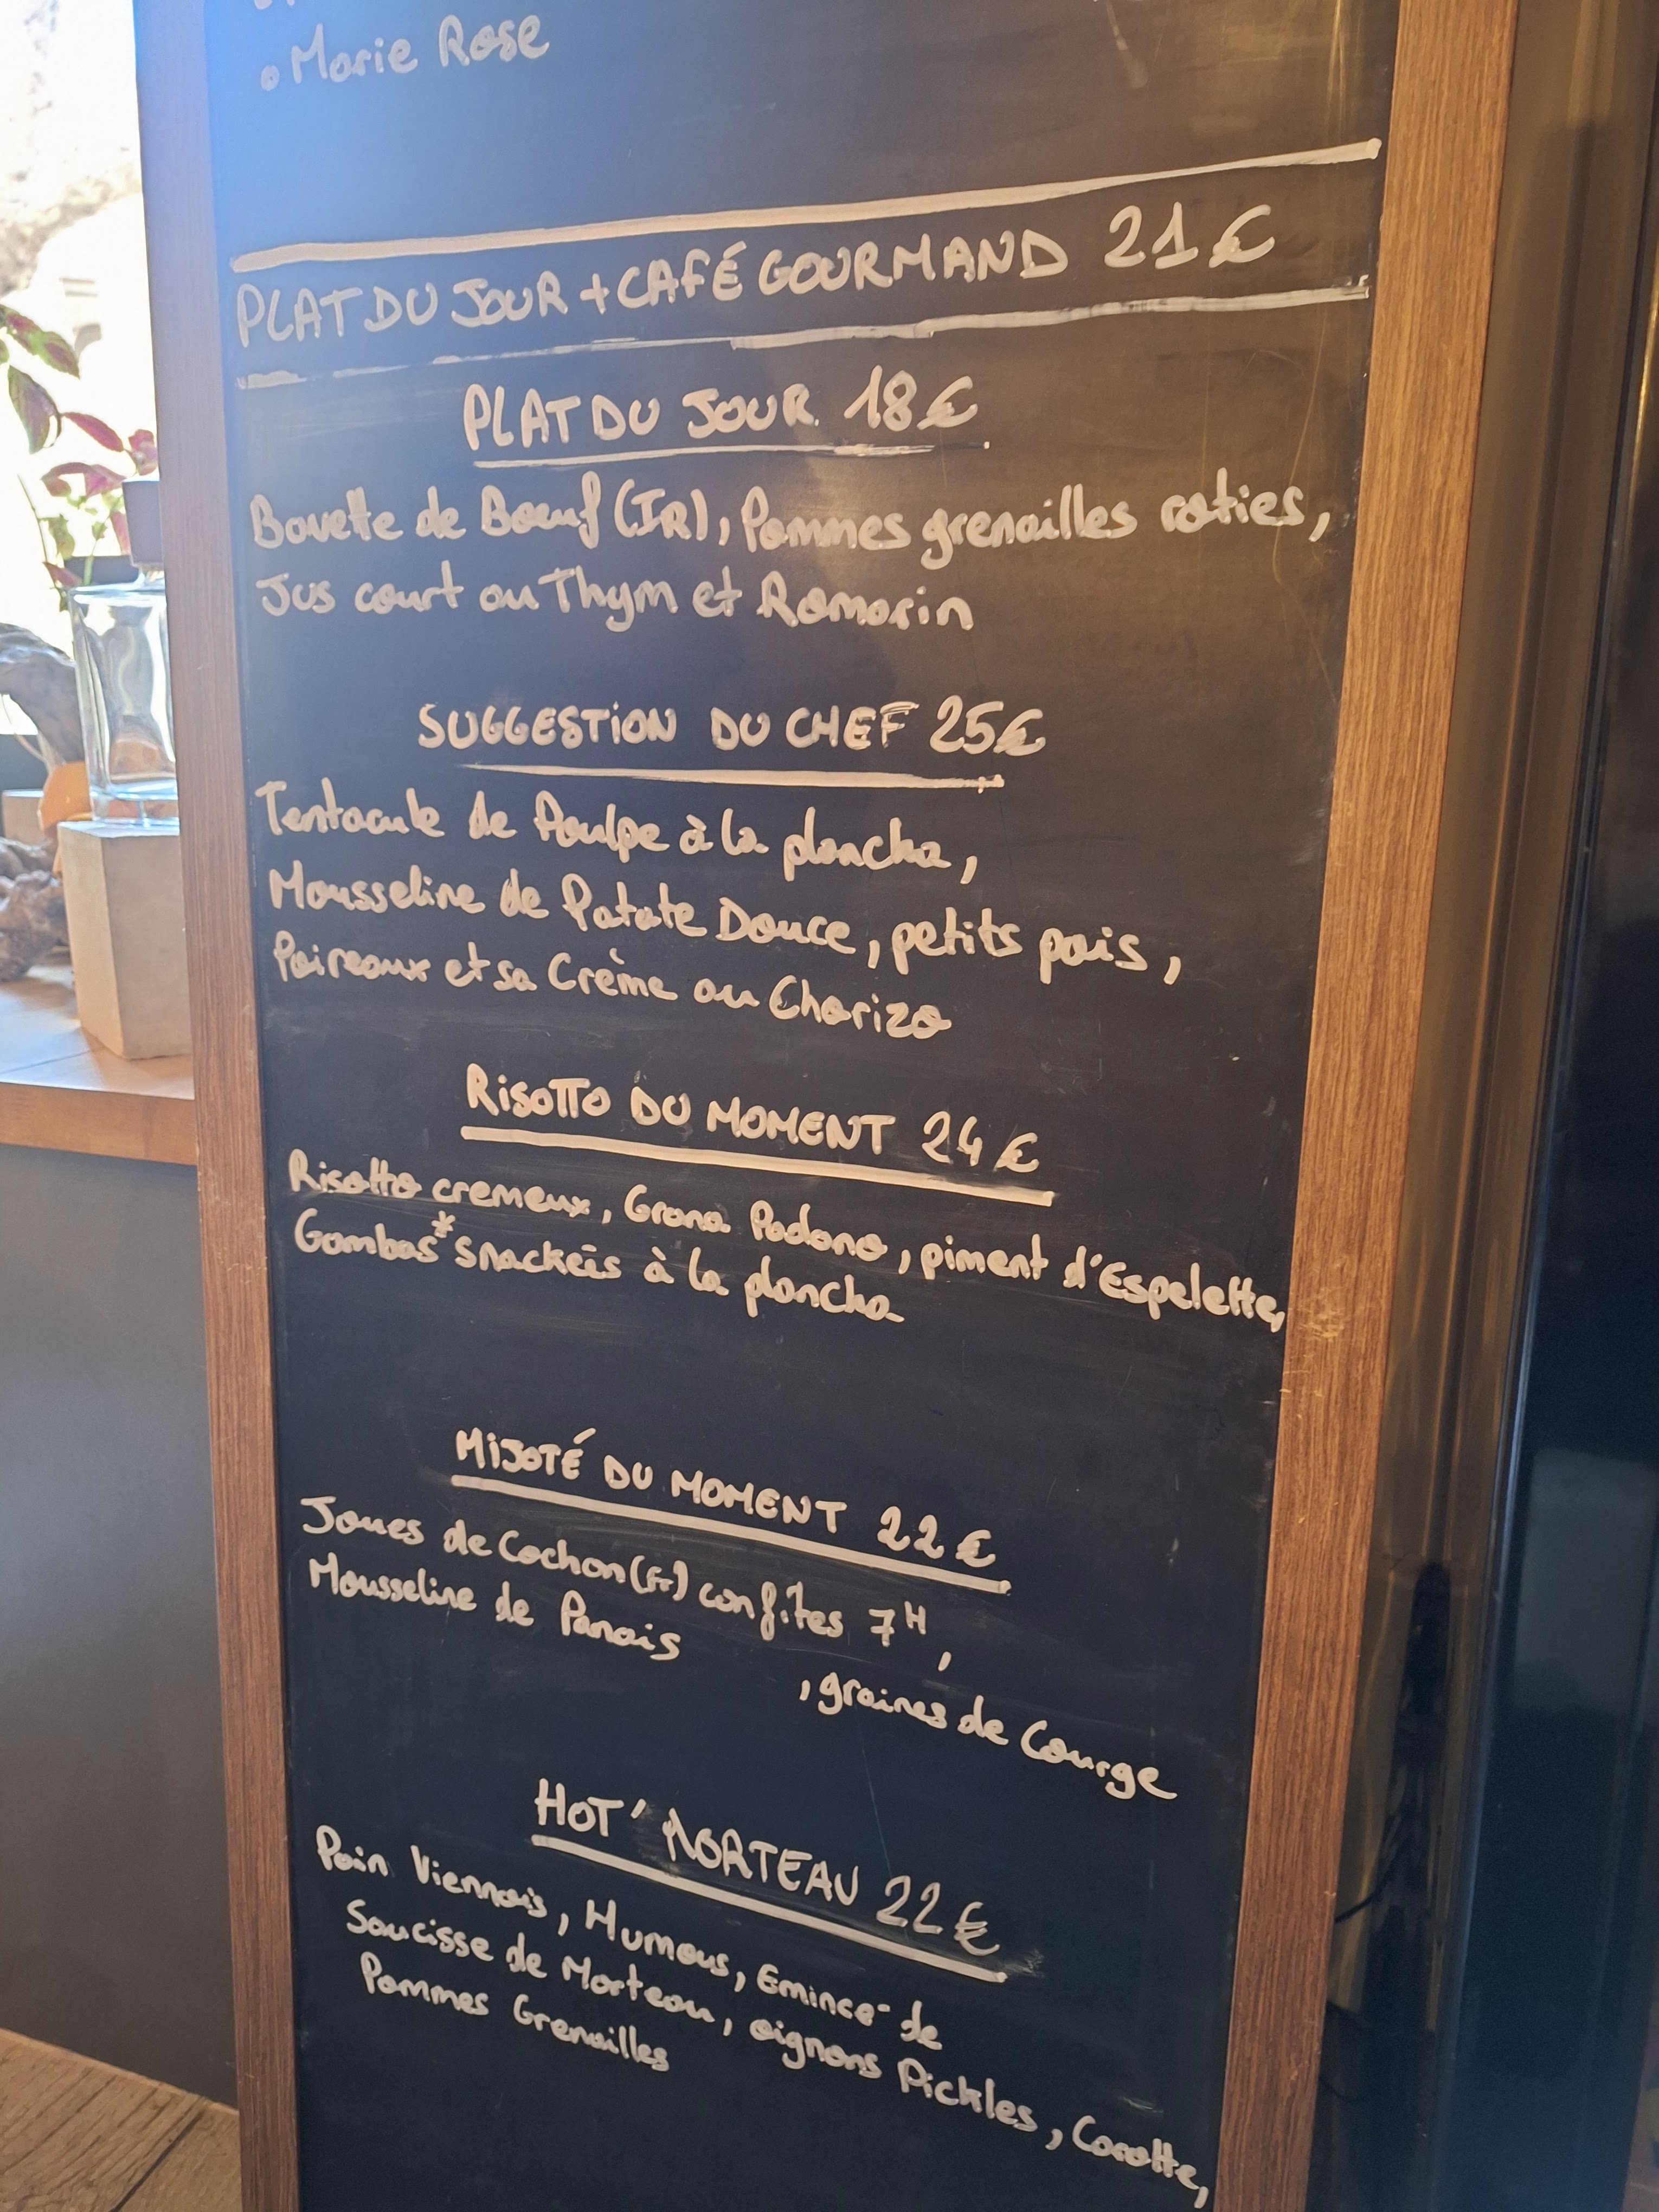 • Marie Rose
PLAT DU JOUR + CAFÉ GOURMAND 21€
PLAT DU JOUR 18€
Bavette de Bœuf (IR), Pommes grenailles roties,
Jus court au Thym et Romarin
SUGGESTION DU CHEF 25€
Tentacule de Poulpe à la plancha,
Mousseline de Patate Douce, petits pois,
Poireaux et sa Crème au Chorizo
RISOTTO DU MOMENT 24€
Risotto cremeux, Grana Padano, piment d'Espelette,
Gambas* snackées à la plancha
MIJOTÉ DU MOMENT 22€
Joues de Cochon (Fr) confites 7H,
Mousseline de Panais
, graines de Courge
HOT' MORTEAU 22€
Pain Viennois, Humous, Emincé de
Saucisse de Morteau, oignons Pickles, Carotte,
Pommes Grenailles